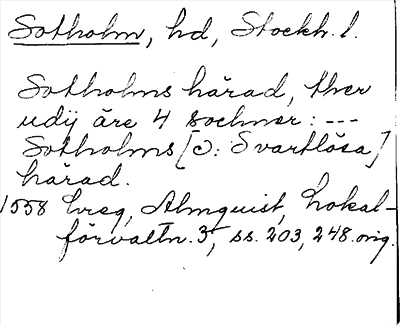 Sotholm, hd, Stockh. l.
Sotholms härad, ther
udij äre 4 sochner: ---
Sotholms [ɔ: Svartlösa]
härad.
1558 Greg, Almquist, Lokal-
förvaltn. 3, ss. 203, 248. orig.